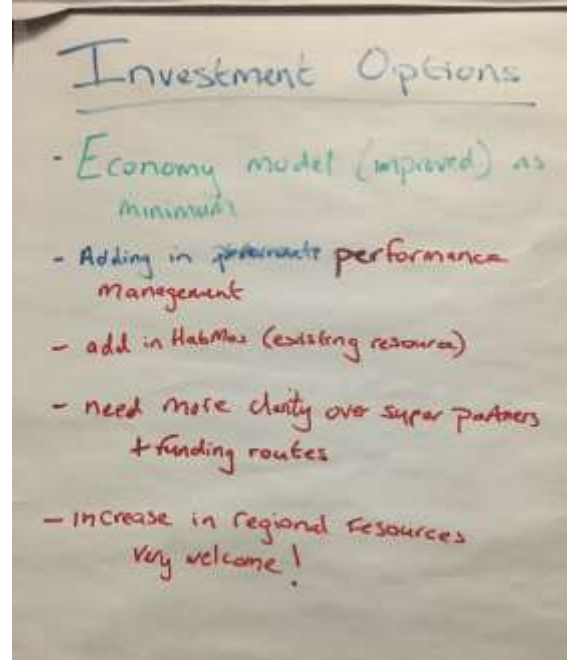 Investment Options
- Economy model (improved) as
minimum
- Adding in performance
management
- add in HabMos (existing resource)
- need more clarity over super partners
+ funding routes
- increase in regional resources
very welcome!